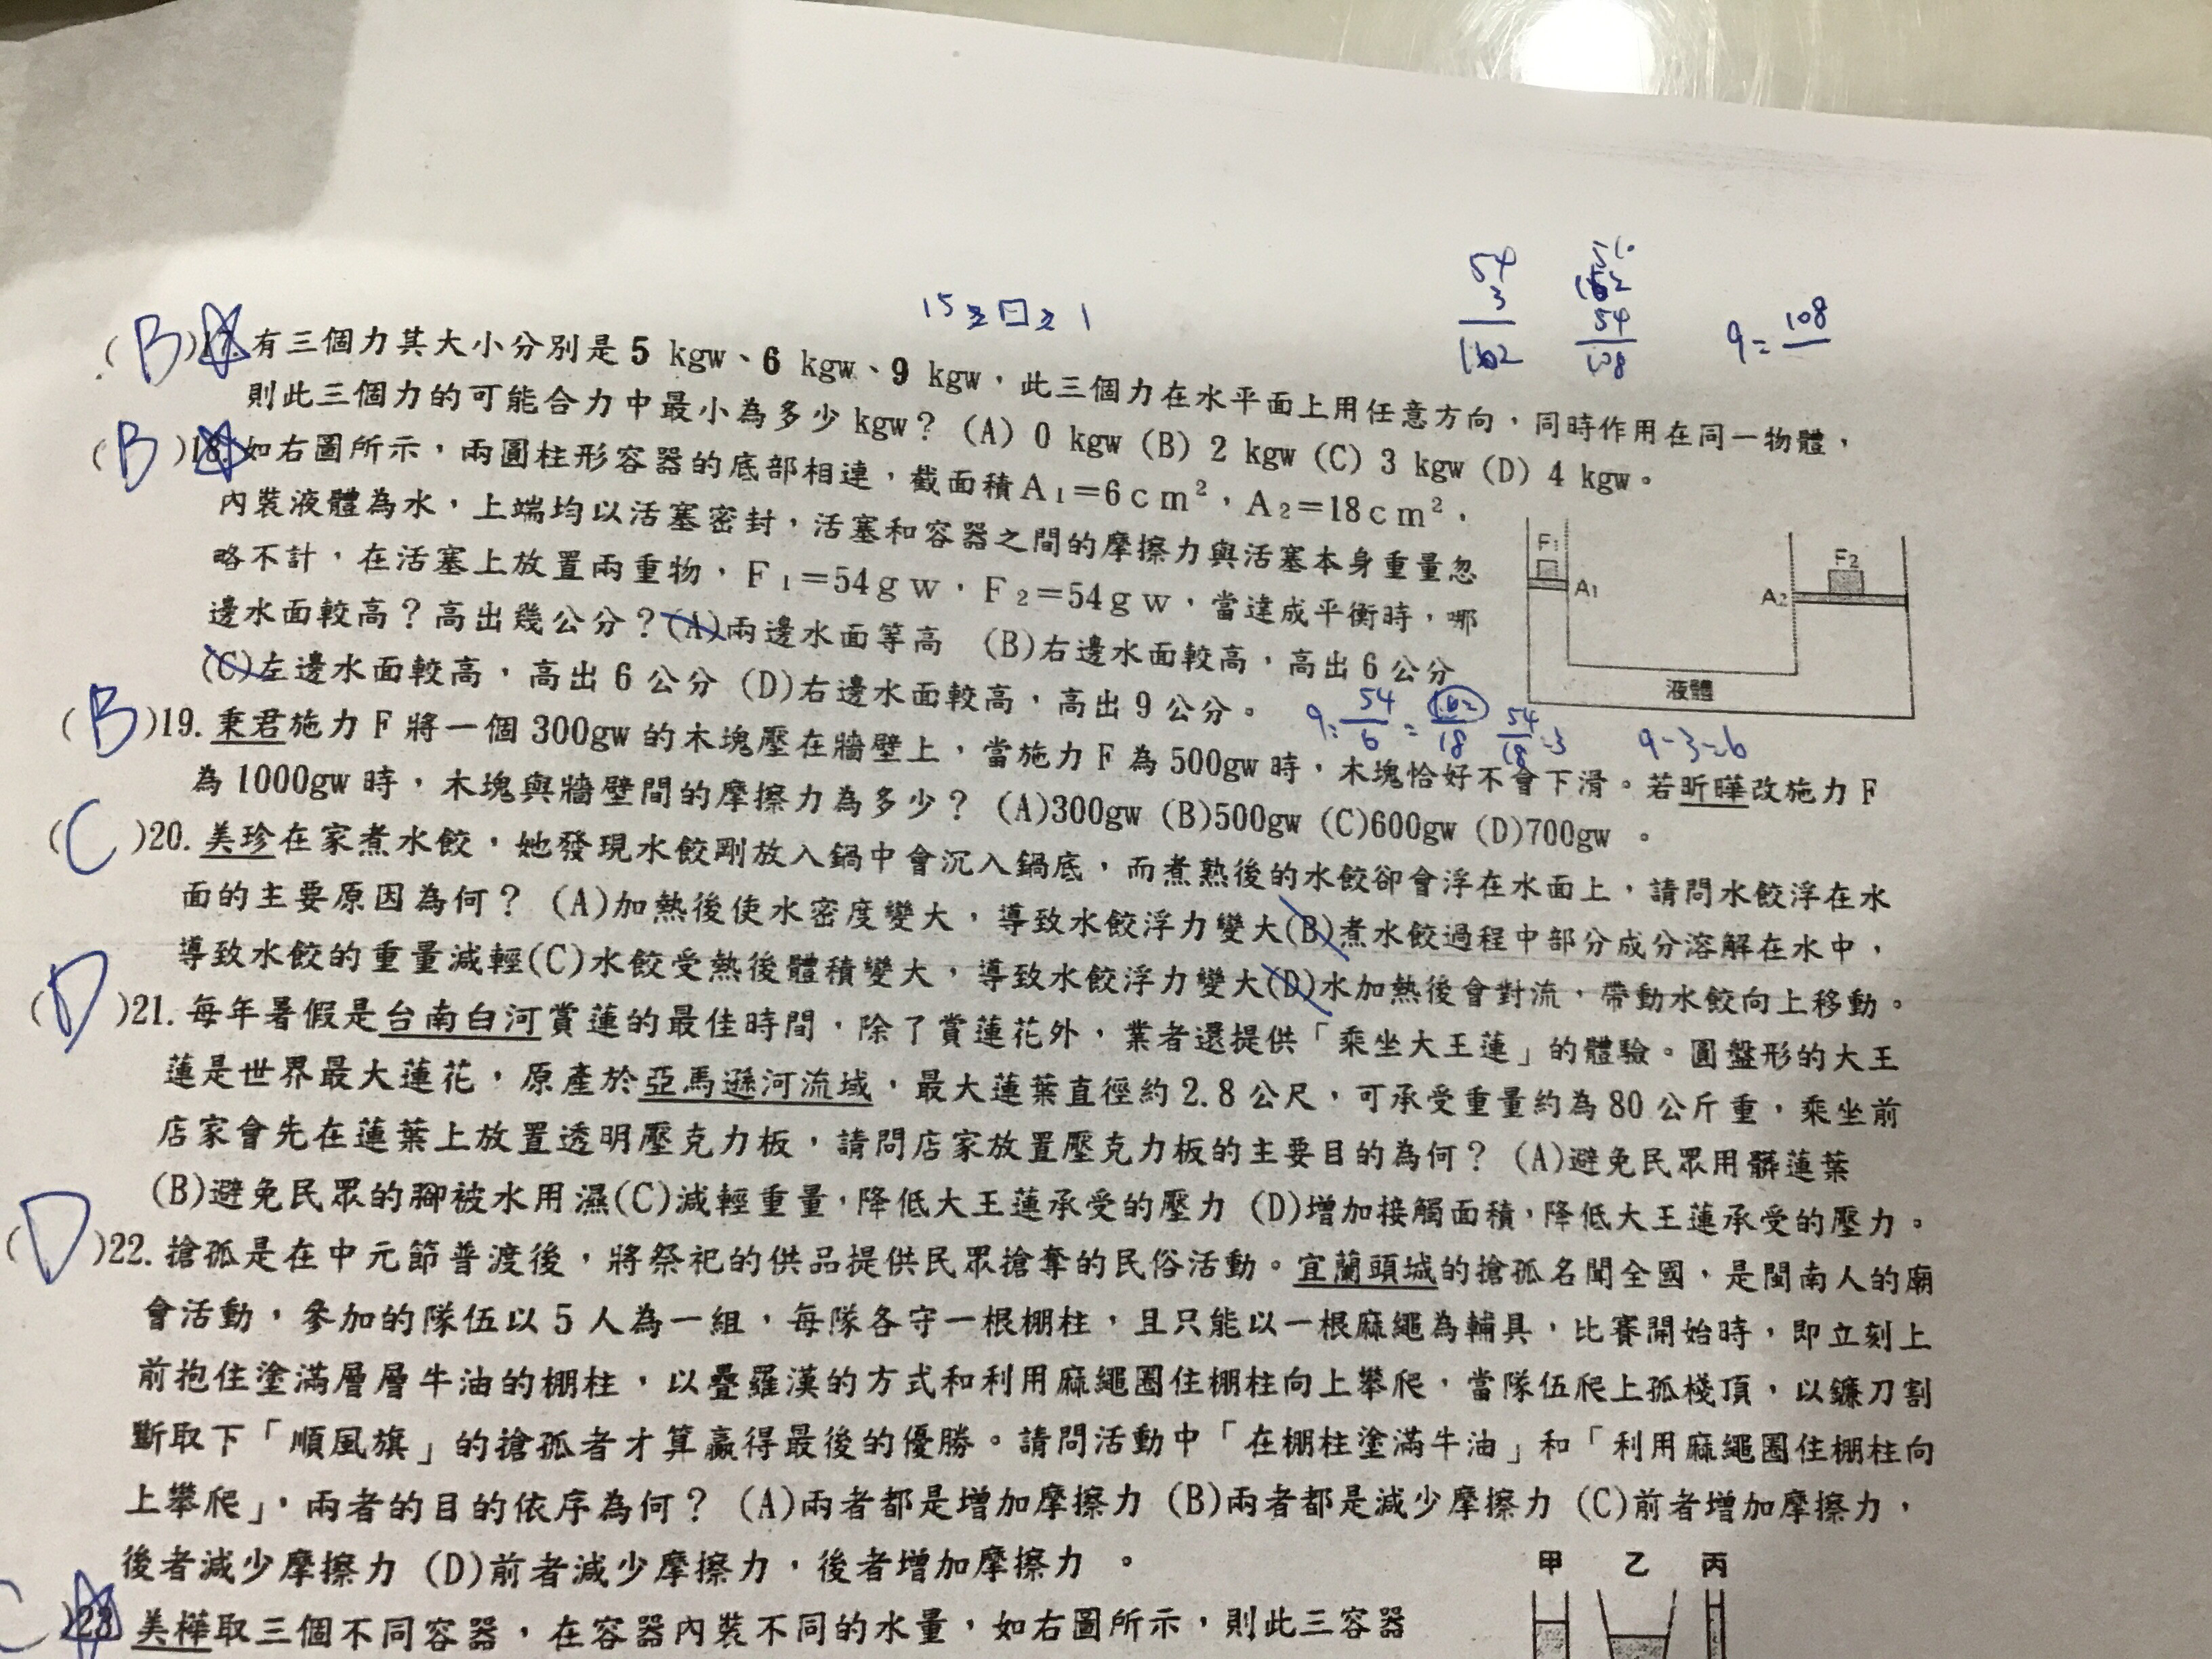 15≧口≧1
54
3
162
162
54
108
9=108
(B)17.有三個力其大小分別是5 kgw、6 kgw、9 kgw，此三個力在水平面上用任意方向，同時作用在同一物體，
則此三個力的可能合力中最小為多少kgw？(A) 0 kgw (B) 2 kgw (C) 3 kgw (D) 4 kgw。
(B)18.如右圖所示，兩圓柱形容器的底部相連，截面積A₁=6cm²，A₂=18cm²，
內裝液體為水，上端均以活塞密封，活塞和容器之間的摩擦力與活塞本身重量忽
略不計，在活塞上放置兩重物，F₁=54gw，F₂=54gw，當達成平衡時，哪
邊水面較高？高出幾公分？(A)兩邊水面等高 (B)右邊水面較高，高出6公分
(C)左邊水面較高，高出6公分 (D)右邊水面較高，高出9公分。
F₁
A₁
F₂
A₂
液體
9=54/6=162/18 54/18=3 9-3=6
(B)19.秉君施力F將一個300gw的木塊壓在牆壁上，當施力F為500gw時，木塊恰好不會下滑。若昕曄改施力F
為1000gw時，木塊與牆壁間的摩擦力為多少？(A)300gw (B)500gw (C)600gw (D)700gw 。
(C)20.美珍在家煮水餃，她發現水餃剛放入鍋中會沉入鍋底，而煮熟後的水餃卻會浮在水面上，請問水餃浮在水
面的主要原因為何？(A)加熱後使水密度變大，導致水餃浮力變大(B)煮水餃過程中部分成分溶解在水中，
導致水餃的重量減輕(C)水餃受熱後體積變大，導致水餃浮力變大(D)水加熱後會對流，帶動水餃向上移動。
(D)21.每年暑假是台南白河賞蓮的最佳時間，除了賞蓮花外，業者還提供「乘坐大王蓮」的體驗。圓盤形的大王
蓮是世界最大蓮花，原產於亞馬遜河流域，最大蓮葉直徑約2.8公尺，可承受重量約為80公斤重，乘坐前
店家會先在蓮葉上放置透明壓克力板，請問店家放置壓克力板的主要目的為何？(A)避免民眾用髒蓮葉
(B)避免民眾的腳被水用濕(C)減輕重量，降低大王蓮承受的壓力 (D)增加接觸面積，降低大王蓮承受的壓力。
(D)22.搶孤是在中元節普渡後，將祭祀的供品提供民眾搶奪的民俗活動。宜蘭頭城的搶孤名聞全國，是閩南人的廟
會活動，參加的隊伍以5人為一組，每隊各守一根棚柱，且只能以一根麻繩為輔具，比賽開始時，即立刻上
前抱住塗滿層層牛油的棚柱，以疊羅漢的方式和利用麻繩圈住棚柱向上攀爬，當隊伍爬上孤棧頂，以鐮刀割
斷取下「順風旗」的搶孤者才算贏得最後的優勝。請問活動中「在棚柱塗滿牛油」和「利用麻繩圈住棚柱向
上攀爬」，兩者的目的依序為何？(A)兩者都是增加摩擦力 (B)兩者都是減少摩擦力 (C)前者增加摩擦力，
後者減少摩擦力 (D)前者減少摩擦力，後者增加摩擦力 。
甲 乙 丙
C)23 美樺取三個不同容器，在容器內裝不同的水量，如右圖所示，則此三容器